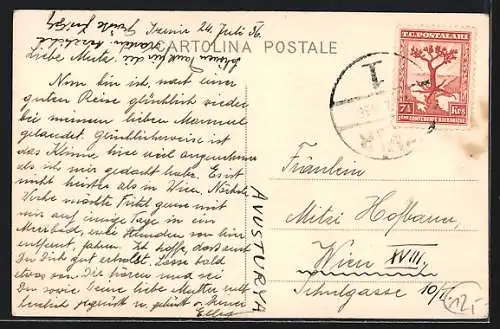 Izmir 24. Juli 36.
CARTOLINA POSTALE
Liebe Mutz,
Nun bin ich, nach einer
guten Reise glücklich wieder
bei meinem lieben Mammerl
gelandet. Glücklicherweise ist
das Klima hier viel angenehmer
als ich mir gedacht habe. Es ist
nicht heißer als in Wien. Nächste
Woche möchte Fritzl gerne mit
mir auf einige Tage in ein
Seebad, etwa Stunden von hier
entfernt, fahren. Ich hoffe, dass auch
Du Dich gut erholst. Lasse bald
etwas von Dir hören und sei
Du sowie Deine liebe Mutter recht
herzlich gegrüßt u. geküßt v. Deiner
T.C. POSTALARI
7½ Krş
AVUSTURYA
Fräulein
Mitzi Hofbauer,
Wien XVIII.
Schulgasse 10/II.